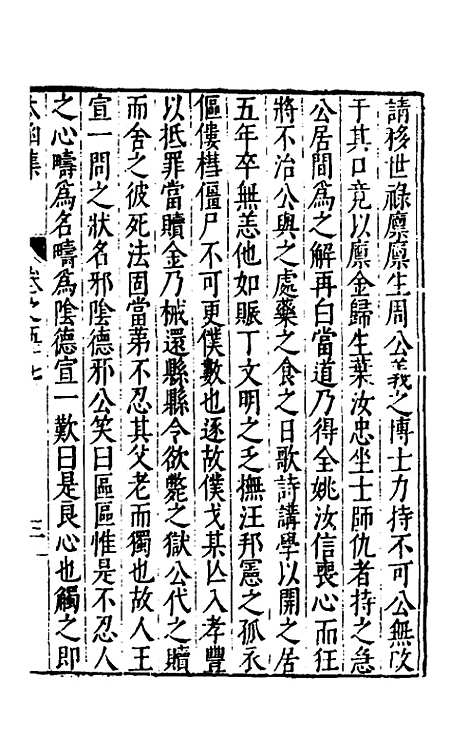 請移世祿廪廪生周公義之博士力持不可公無改
于其口竟以廪金歸生葉汝忠坐士師仇者持之急
公居間為之解再白當道乃得全姚汝信喪心而狂
將不治公與之處藥之食之日歌詩講學以開之居
五年卒無恙他如賑丁文明之乏撫汪邦憲之孤衣
傴僂槥僵尸不可更僕數也逐故僕戈某亾入孝豐
以抵罪當贖金乃械還縣縣令欲斃之獄公代之贖
而舍之彼死法固當第不忍其父老而獨也故人王
宣一問之狀名邪陰德邪公笑曰區區惟是不忍人
之心疇為名疇為陰德宣一歎曰是良心也觸之即
太函集
卷之五十七
三